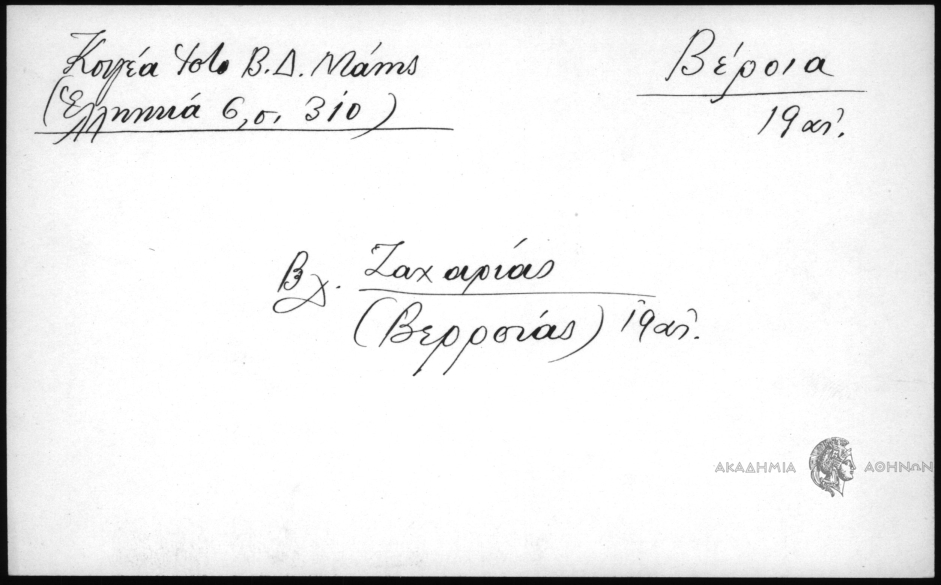 Κουγέα Υστο Β.Δ. Μάνης
(Ἑλληνικά 6, σ. 310)
Βέρσια
19 αἰ.
Βλ. Ζαχαρίας
(Βερροιάς) 19 αἰ.
ΑΚΑΔΗΜΙΑ ΑΘΗΝΩΝ